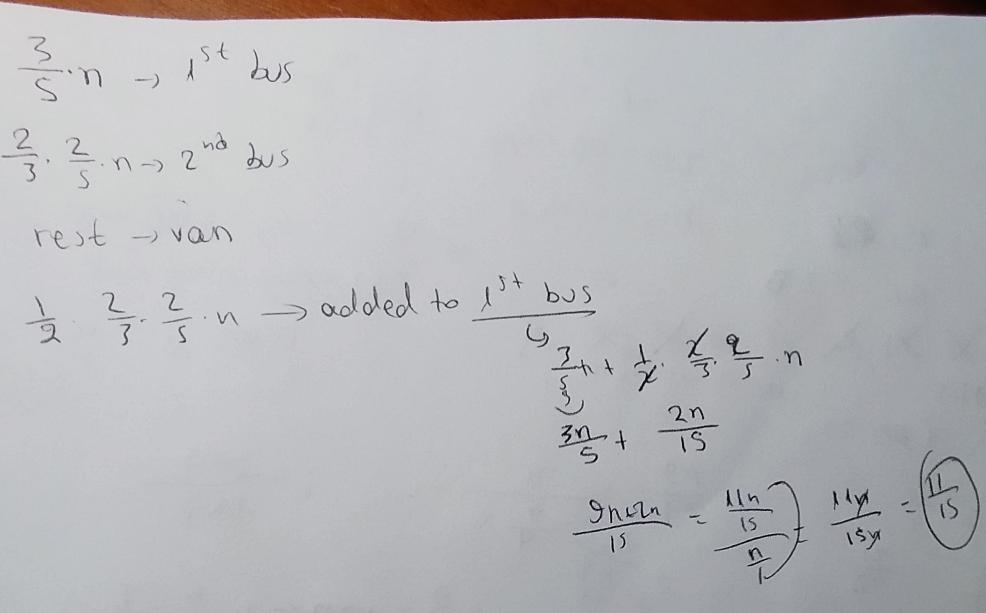 3/5 · n → 1st bus
2/3 · 2/5 · n → 2nd bus
rest → van
1/2 · 2/3 · 2/5 · n → added to 1st bus
3/5 n + 1/2 · 2/3 · 2/5 · n
3n/5 + 2n/15
9n+2n/15 = 11n/15 / n/1 = 11n/15n = 11/15